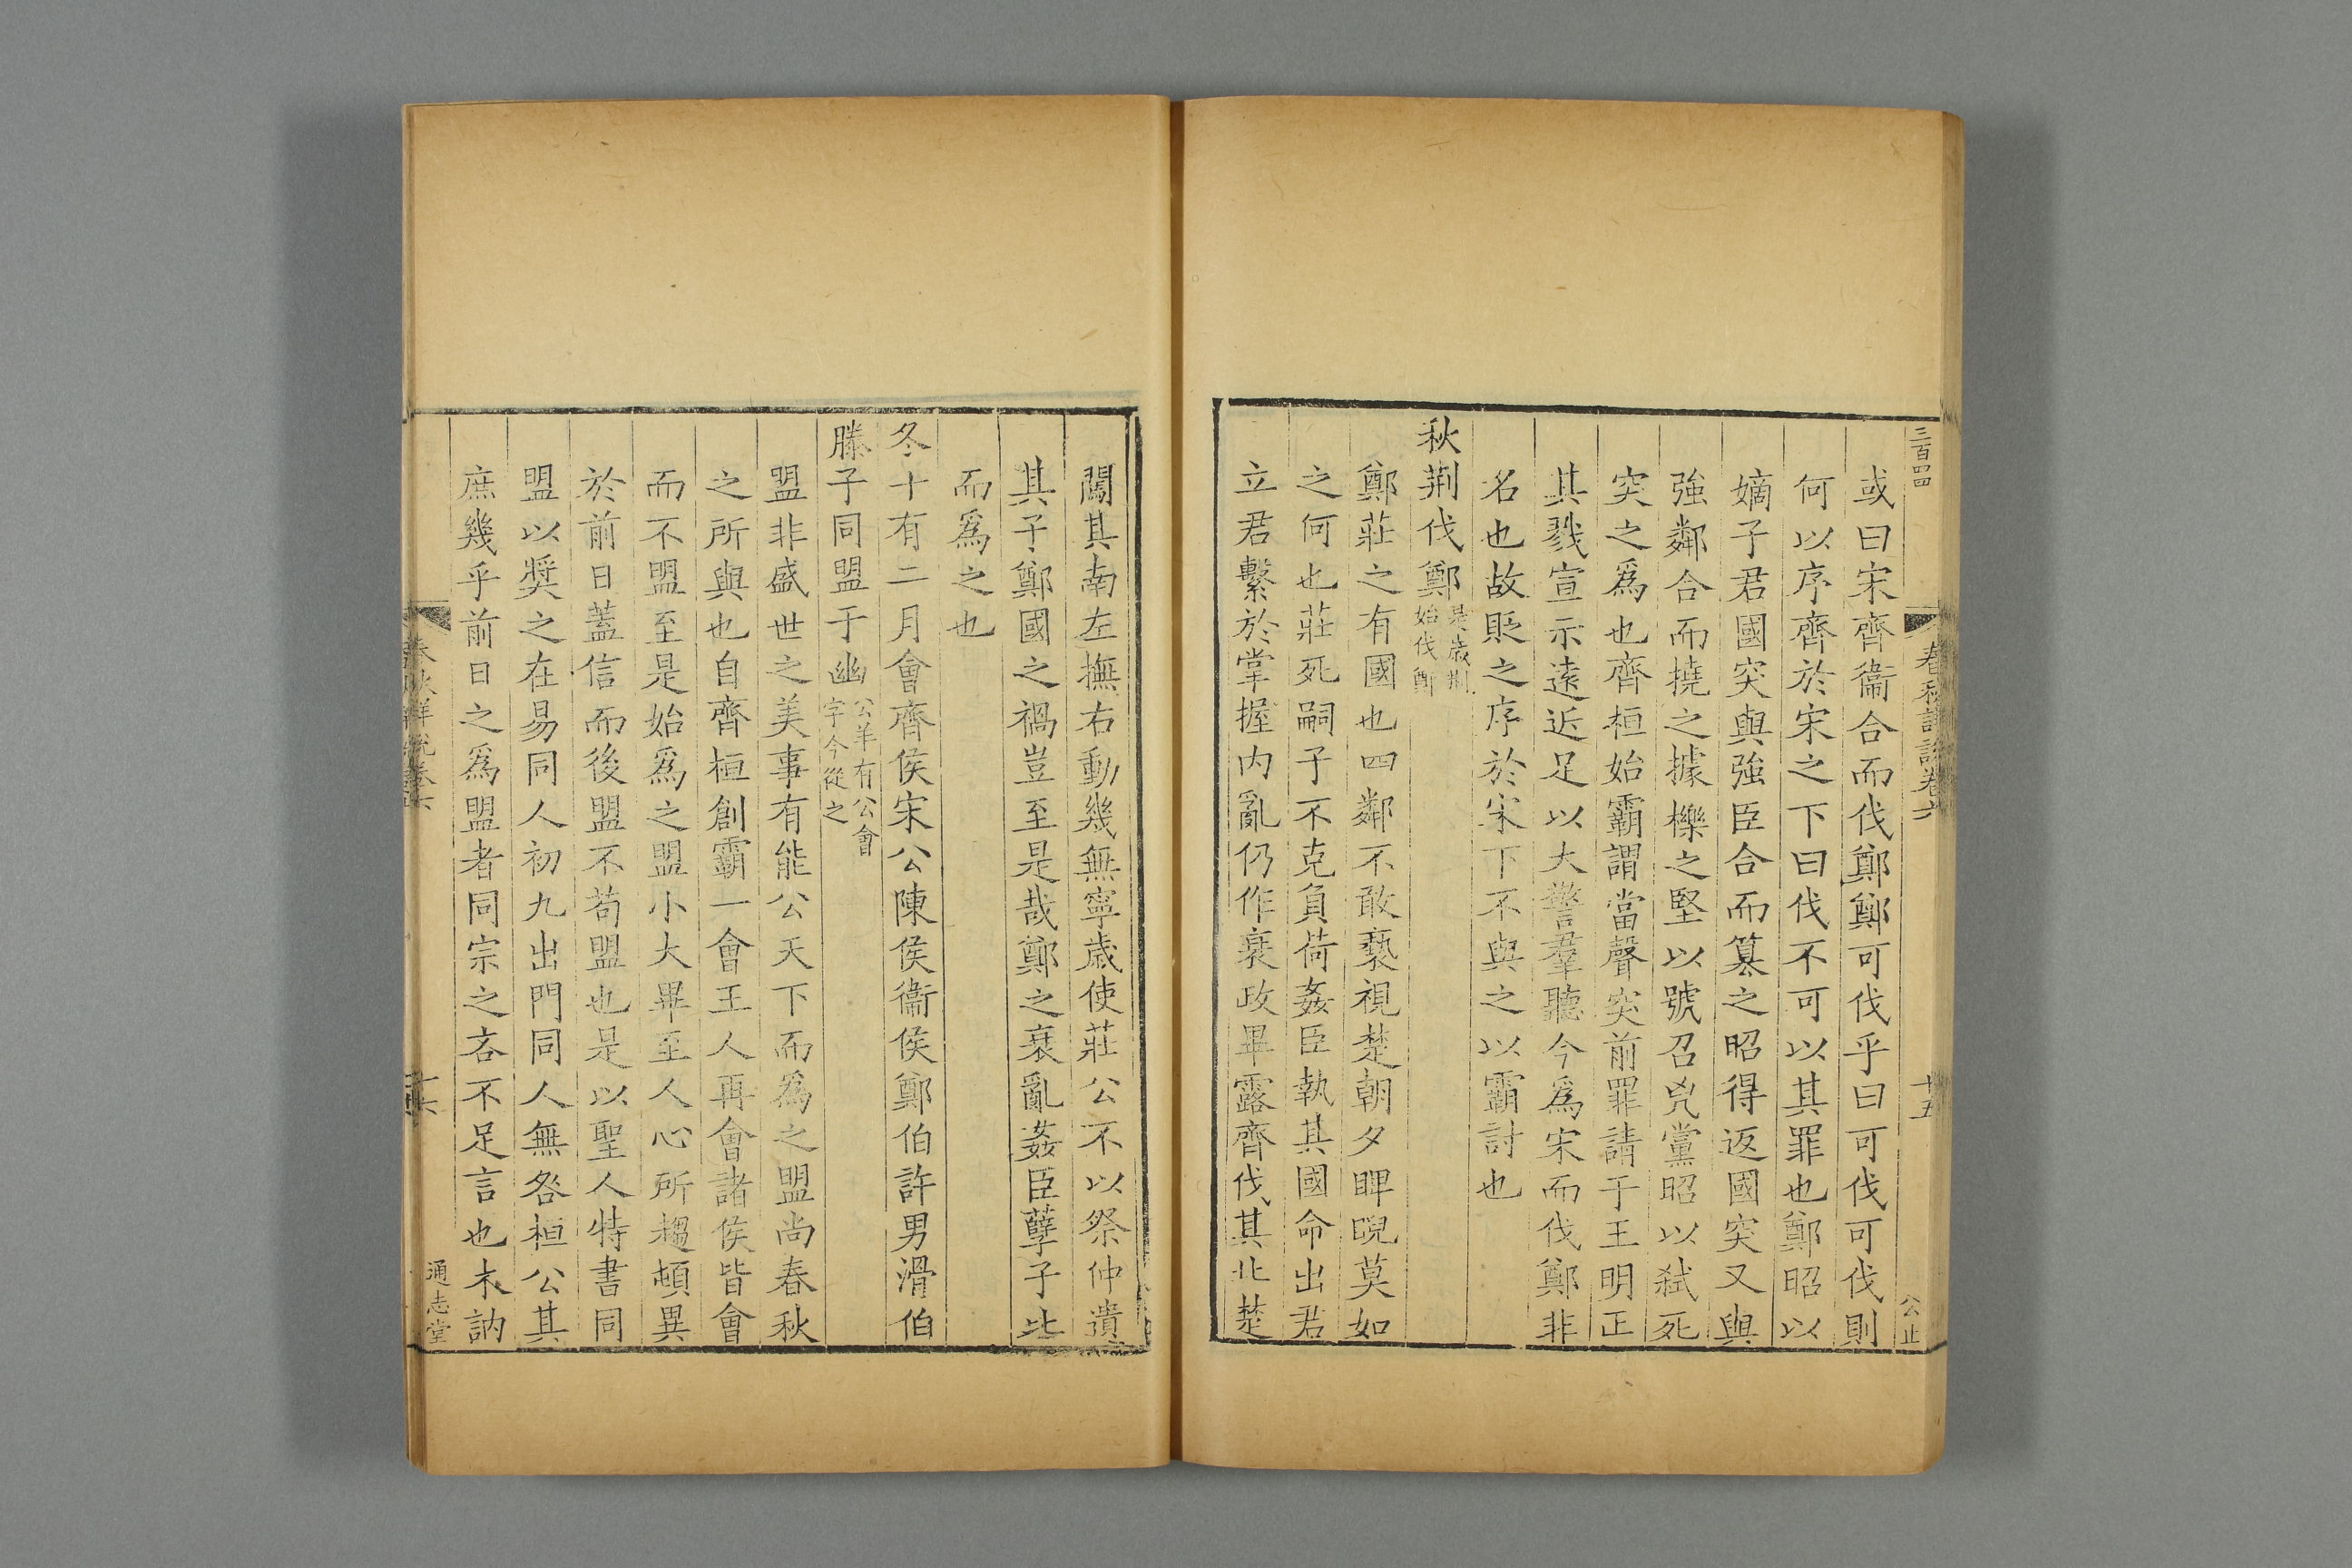 三百四四
春秋詳說卷六
十五
公止
或曰宋齊衞合而伐鄭鄭可伐乎曰可伐可伐則
何以序齊於宋之下曰伐不可以其罪也鄭昭以
嫡子君國突與強臣合而簒之昭得返國突又與
強鄰合而撓之據櫟之堅以號召兇黨昭以弑死
突之爲也齊桓始霸謂當聲突前罪請于王明正
其戮宣示遠近足以大警羣聽今爲宋而伐鄭非
名也故貶之序於宋下不與之以霸討也
秋荆伐鄭是歲荆始伐鄭
鄭莊之有國也四鄰不敢褻視楚朝夕睥睨莫如
之何也莊死嗣子不克負荷姦臣執其國命出君
立君繫於掌握内亂仍作衰政畢露齊伐其北楚
闖其南左撫右動幾無寧歲使莊公不以祭仲遺
其子鄭國之禍豈至是哉鄭之衰亂姦臣孽子比
而爲之也
冬十有二月會齊侯宋公陳侯衞侯鄭伯許男滑伯
滕子同盟于幽公羊有公會字今從之
盟非盛世之美事有能公天下而爲之盟尚春秋
之所與也自齊桓創霸一會王人再會諸侯皆會
而不盟至是始爲之盟小大畢至人心所趨頓異
於前日蓋信而後盟不苟盟也是以聖人特書同
盟以奬之在易同人初九出門同人無咎桓公其
庶幾乎前日之爲盟者同宗之吝不足言也木訥
春秋詳說卷六
十六
通志堂